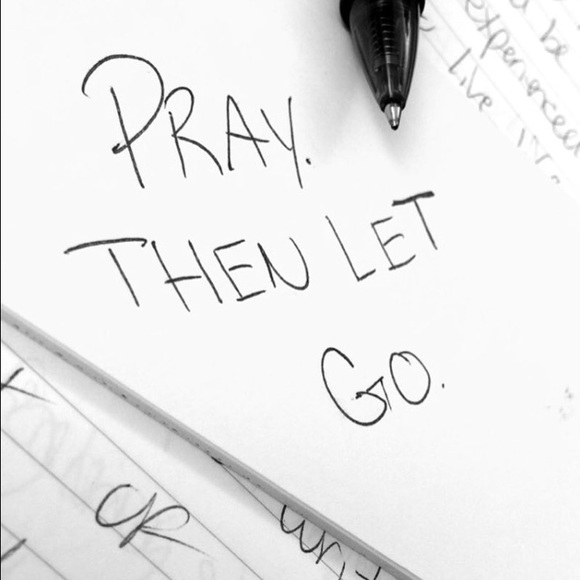 PRAY.
THEN LET
GO.
be
experienced
live
OR